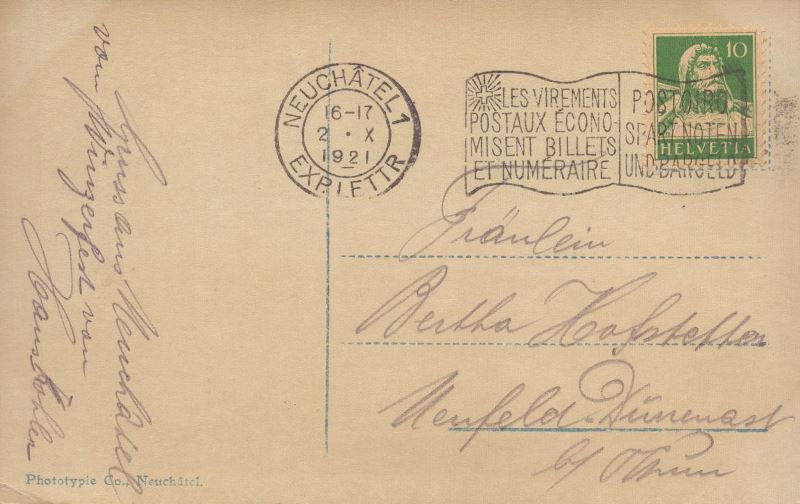 Gruss aus Neuchâtel
vom Winzerfest von
Hans Kohler
Phototypie Co., Neuchâtel.
NEUCHÂTEL 1
16-17
2 · X
1921
EXP. LETTR
LES VIREMENTS
POSTAUX ÉCONO-
MISENT BILLETS
ET NUMÉRAIRE
POSTGIRO
SPART NOTEN
UND BARGELD
10
HELVETIA
Fräulein
Bertha Hofstetter
Neufeld-Dürrenast
b/ Thun